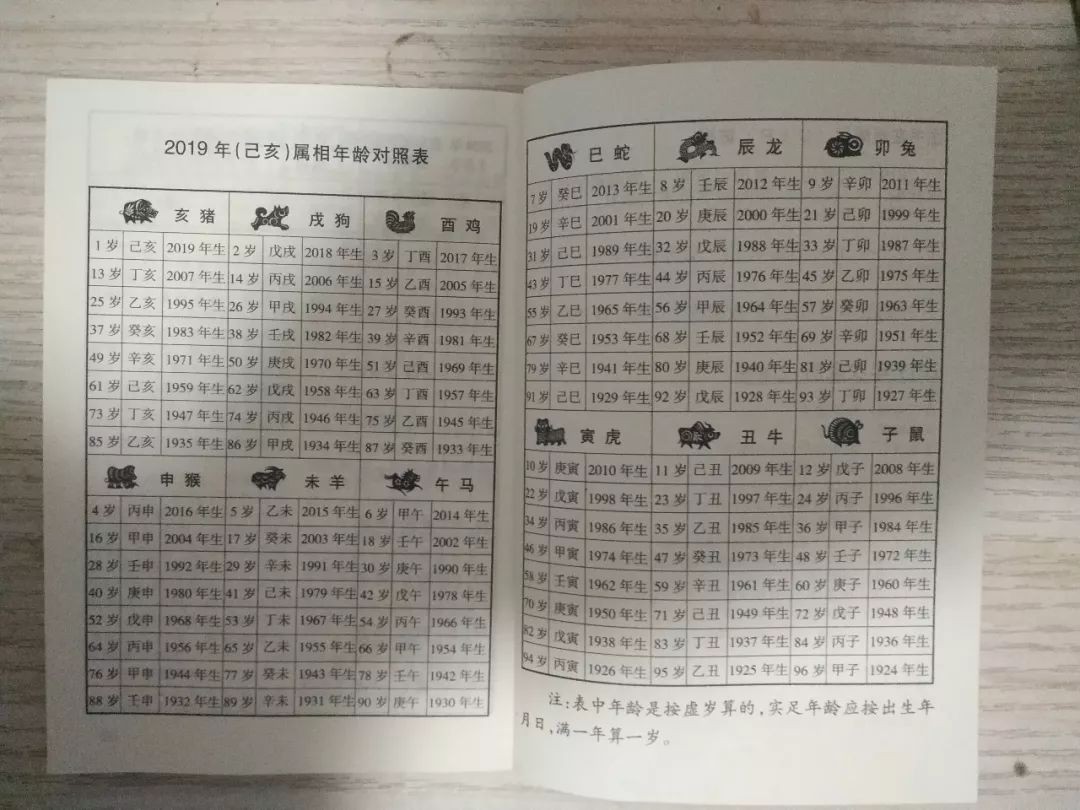 2019年(己亥)属相年龄对照表
亥猪 戌狗 酉鸡
1岁 己亥 2019年生 2岁 戊戌 2018年生 3岁 丁酉 2017年生
13岁 丁亥 2007年生 14岁 丙戌 2006年生 15岁 乙酉 2005年生
25岁 乙亥 1995年生 26岁 甲戌 1994年生 27岁 癸酉 1993年生
37岁 癸亥 1983年生 38岁 壬戌 1982年生 39岁 辛酉 1981年生
49岁 辛亥 1971年生 50岁 庚戌 1970年生 51岁 己酉 1969年生
61岁 己亥 1959年生 62岁 戊戌 1958年生 63岁 丁酉 1957年生
73岁 丁亥 1947年生 74岁 丙戌 1946年生 75岁 乙酉 1945年生
85岁 乙亥 1935年生 86岁 甲戌 1934年生 87岁 癸酉 1933年生
申猴 未羊 午马
4岁 丙申 2016年生 5岁 乙未 2015年生 6岁 甲午 2014年生
16岁 甲申 2004年生 17岁 癸未 2003年生 18岁 壬午 2002年生
28岁 壬申 1992年生 29岁 辛未 1991年生 30岁 庚午 1990年生
40岁 庚申 1980年生 41岁 己未 1979年生 42岁 戊午 1978年生
52岁 戊申 1968年生 53岁 丁未 1967年生 54岁 丙午 1966年生
64岁 丙申 1956年生 65岁 乙未 1955年生 66岁 甲午 1954年生
76岁 甲申 1944年生 77岁 癸未 1943年生 78岁 壬午 1942年生
88岁 壬申 1932年生 89岁 辛未 1931年生 90岁 庚午 1930年生
巳蛇 辰龙 卯兔
7岁 癸巳 2013年生 8岁 壬辰 2012年生 9岁 辛卯 2011年生
19岁 辛巳 2001年生 20岁 庚辰 2000年生 21岁 己卯 1999年生
31岁 己巳 1989年生 32岁 戊辰 1988年生 33岁 丁卯 1987年生
43岁 丁巳 1977年生 44岁 丙辰 1976年生 45岁 乙卯 1975年生
55岁 乙巳 1965年生 56岁 甲辰 1964年生 57岁 癸卯 1963年生
67岁 癸巳 1953年生 68岁 壬辰 1952年生 69岁 辛卯 1951年生
79岁 辛巳 1941年生 80岁 庚辰 1940年生 81岁 己卯 1939年生
91岁 己巳 1929年生 92岁 戊辰 1928年生 93岁 丁卯 1927年生
寅虎 丑牛 子鼠
10岁 庚寅 2010年生 11岁 己丑 2009年生 12岁 戊子 2008年生
22岁 戊寅 1998年生 23岁 丁丑 1997年生 24岁 丙子 1996年生
34岁 丙寅 1986年生 35岁 乙丑 1985年生 36岁 甲子 1984年生
46岁 甲寅 1974年生 47岁 癸丑 1973年生 48岁 壬子 1972年生
58岁 壬寅 1962年生 59岁 辛丑 1961年生 60岁 庚子 1960年生
70岁 庚寅 1950年生 71岁 己丑 1949年生 72岁 戊子 1948年生
82岁 戊寅 1938年生 83岁 丁丑 1937年生 84岁 丙子 1936年生
94岁 丙寅 1926年生 95岁 乙丑 1925年生 96岁 甲子 1924年生
注:表中年龄是按虚岁算的,实足年龄应按出生年
月日,满一年算一岁。